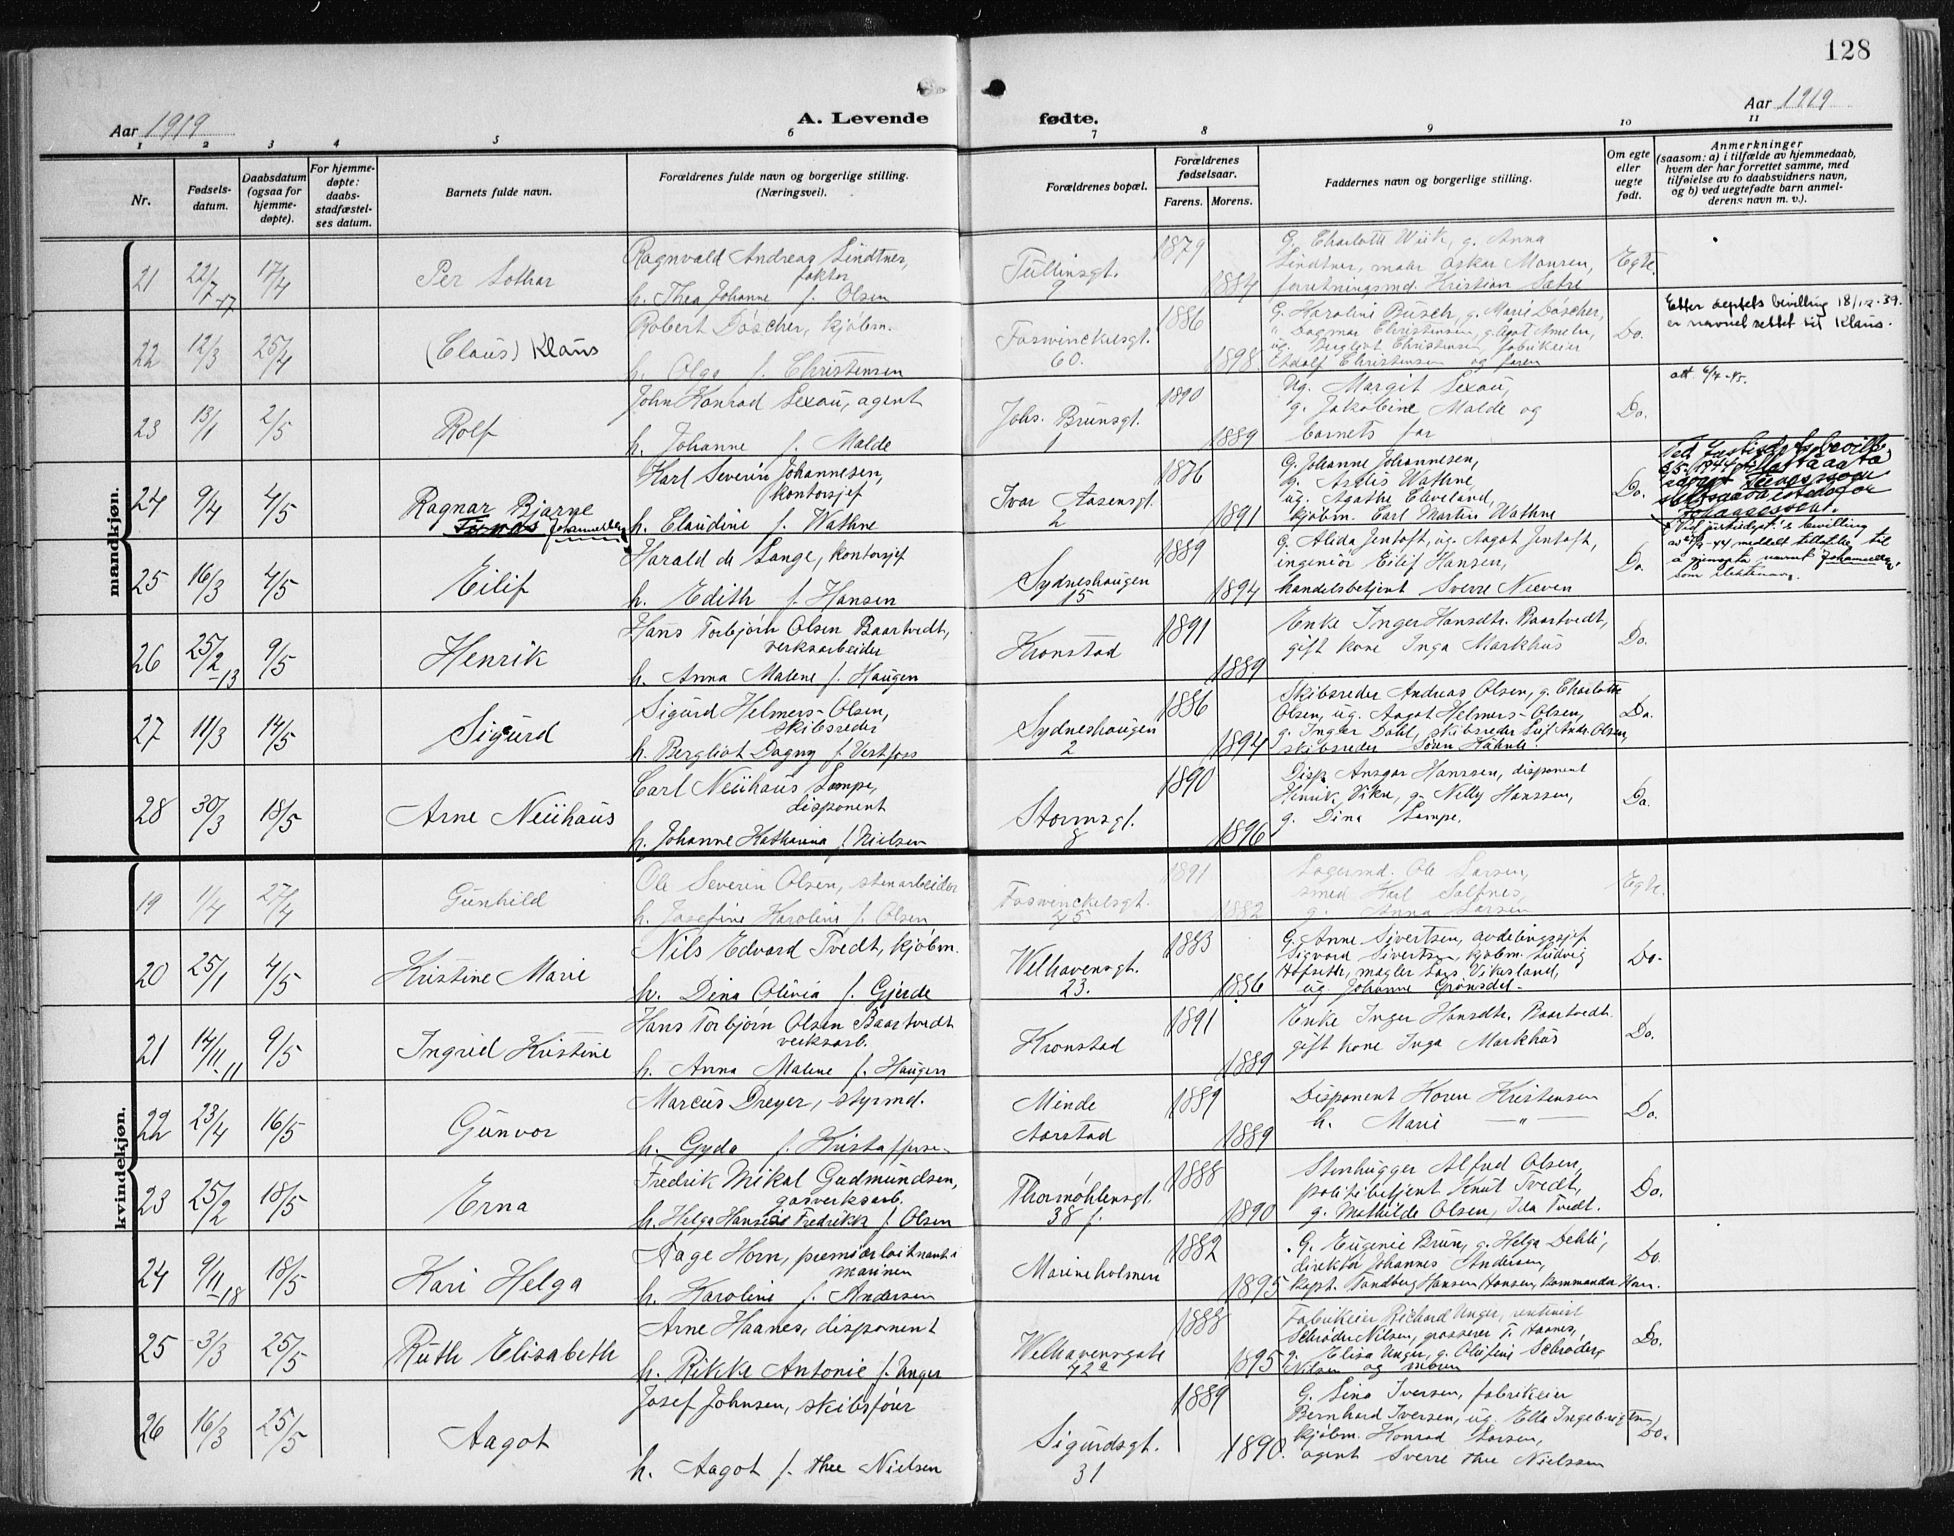 128
Aar 1919
A. Levende
fødte.
Aar 1919
1 2 3 4 5 6 7 8 9 10 11
Nr.
Fødsels-
datum.
Daabsdatum
(ogsaa for
hjemme-
døpte).
For hjemme-
døpte:
daabs-
stadfæstel-
ses datum.
Barnets fulde navn.
Forældrenes fulde navn og borgerlige stilling.
(Næringsvei).
Forældrenes bopæl.
Forældrenes
fødselsaar.
Farens. Morens.
Faddernes navn og borgerlige stilling.
Om egte
eller
uegte
født.
Anmerkninger
(saasom: a) i tilfælde av hjemmedaab,
hvem der har forrettet samme, med
tilføielse av to daabsvidners navn,
og b) ved uegtefødt barn anmel-
derens navn m. v.).
mandkjøn.
21 22/7-17 17/4 Per Lothar
Ragnvald Andreas Lindtner,
faktor
h. Thea Johanne f. Olsen
Tullinsgt.
9
1879 1884
G. Charlotte Wiik, g. Anna
Lindtner, maler Oskar Monsen,
forretningsmd. Kristian Sætre
Egte.
22 12/3 25/4 (Claus) Klaus
Robert Döscher, kjøbm.
h. Olga f. Christensen
Fosvinckelsgt.
60.
1886 1898
G. Karoline Busch, g. Marie Döscher,
" Dagmar Christensen, g. Agot Ameln,
ug. Bergliot Christensen, fabrikeier
Adolf Christensen og faren
Do.
Etter deptets bevilling 18/12-39.
er navnet rettet til Klaus.
23 13/1 2/5 Rolf
John Konrad Sexau, agent
h. Johanne f. Malde
Johs. Brunsgt.
1
1890 1889
Ug. Margit Sexau,
g. Jakobine Malde og
barnets far
Do.
att. 6/4-45.
24 9/4 4/5 Ragnar Bjarne
Johannessen
Karl Severin Johannesen,
kontorsjef
h. Claudine f. Wathne
Ivar Aasensgt.
2
1876 1891
G. Johanne Johannesen,
ug. Asdis Wathne,
ug. Agathe Cleveland,
kjøbm. Carl Martin Wathne
Do.
Johannessen.
25 16/3 4/5 Eilif
Harald de Lange, kontorsjef
h. Edith f. Hansen
Sydneshaugen
15
1889 1894
G. Alida Jentoft, ug. Aagot Jentoft,
ingeniör Eilif Hansen,
handelsbetjent Sverre Neeven
Do.
som slektsnavn.
26 25/2-13 9/5 Henrik
Hans Torbjörn Olsen Baartvedt,
verksarbeider
h. Anna Malene f. Haugen
Kronstad
1891 1889
Enke Inger Hansdtr. Baartvedt,
gift kone Inga Markhus
Do.
27 11/3 14/5 Sigurd
Sigurd Helmers-Olsen,
skibsreder
h. Bergliot Dagny f. Vestfoss
Sydneshaugen
2
1886 1894
Skibsreder Andreas Olsen, g. Charlotte
Olsen, ug. Aagot Helmers-Olsen,
g. Inger Dahl, skibsreder Leif Andr. Olsen,
skibsreder
Do.
28 30/3 18/5 Arne Neuhaus
Carl Neuhaus Lampe,
disponent
h. Johanne Katharina f. Nielsen
Stormsgt.
8
1890 1896
Disp. Ansgar Hanssen, disponent
Henrik Vike, g. Nelly Hanssen,
g. Dina Lampe.
Do.
kvindekjøn.
19 1/4 27/4 Gunhild
Ole Severin Olsen, stenarbeider
h. Josefine Karoline f. Olsen
Fosvinckelsgt.
45
1891 1882
Lagermd. Ole Larsen,
smed Karl
g. Anna Larsen
Egte.
20 25/1 4/5 Kristine Marie
Nils Edvard Tvedt, kjøbm.
h. Dina Olivia f. Gjerde
Welhavensgt.
23.
1883 1886
G. Anne Sivertsen, avdelingssjef
Sigvard Sivertsen, kjøbm. Ludvig
Hofseth, mægler Lars Vikesland,
ug Johanne Grønsdal
Do.
21 14/11-11 9/5 Ingrid Kristine
Hans Torbjørn Olsen Baartvedt
verksarb.
h. Anna Malene f. Haugen
Kronstad
1891 1889
Enke Inger Hansdtr. Baartvedt
gift kone Inga Markhus
Do.
22 23/4 16/5 Gunvor
Marcus Dreyer, styrmd.
h. Gyda f. Kristoffersen
Minde
Aarstad
1889 1889
Disponent Koren Kristensen
h. Marie — " —
Do.
23 25/2 18/5 Erna
Fredrik Mikal Gudmundsen,
gasverksarb.
h. Helga Hansine Fredrikke f. Olsen
Thormøhlensgt.
38 f.
1888 1890
Stenhugger Alfred Olsen,
politibetjent Knut Tvedt,
g. Mathilde Olsen, Ida Tvedt.
Do.
24 9/11-18 18/5 Kari Helga
Aage Horn, premiærløitnant i
marinen
h. Karoline f. Andersen
Marineholmen
1882 1895
G. Eugenie Brun, g. Helga Dehli,
direktør Johannes Andersen,
kapt. Sandberg Hansen Hansen, kommandør Horn.
Do.
25 3/3 25/5 Ruth Elisabeth
Arne Haanes, disponent
h. Rikka Antonie f. Unger
Welhavensgate
42a
1888 1895
Fabrikeier Richard Unger, rentenist
Schrøder Nilsen, grosserer T. Haanes,
g. Elisa Unger, g. Olufine Schrøder
Nilsen og moren
Do.
26 16/3 25/5 Aagot
Josef Johnsen, skibsfører
h. Aagot f. thee Nielsen
Sigurdsgt.
31
1889 1890.
G. Lina Iversen, fabrikeier
Bernhard Iversen, ug. Ella Ingebrigtsen,
kjøbm. Konrad Larsen,
agent Sverre thee Nielssen
Do.